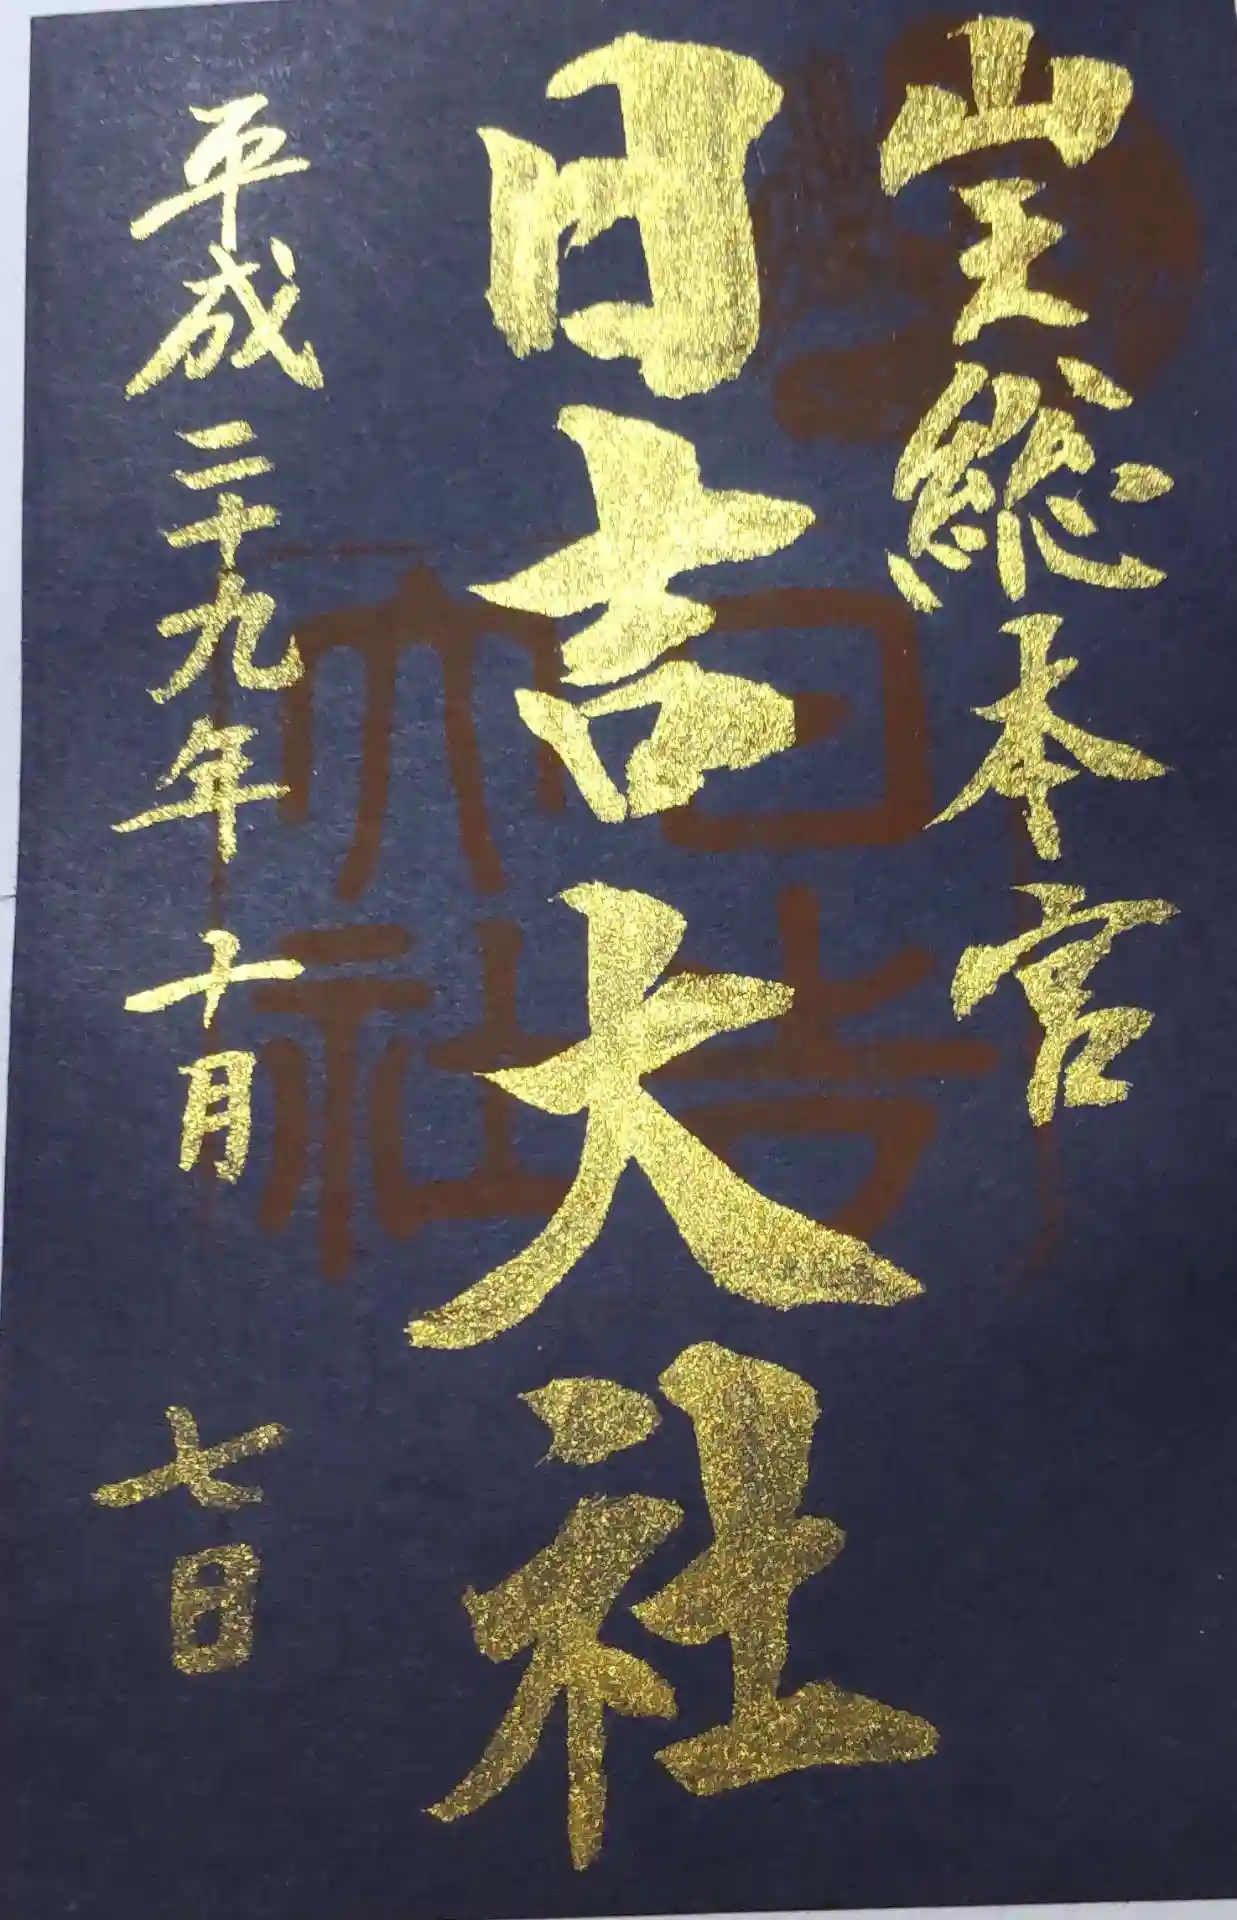 山王総本宮
日吉大社
平成二十九年十月七日
日吉大社